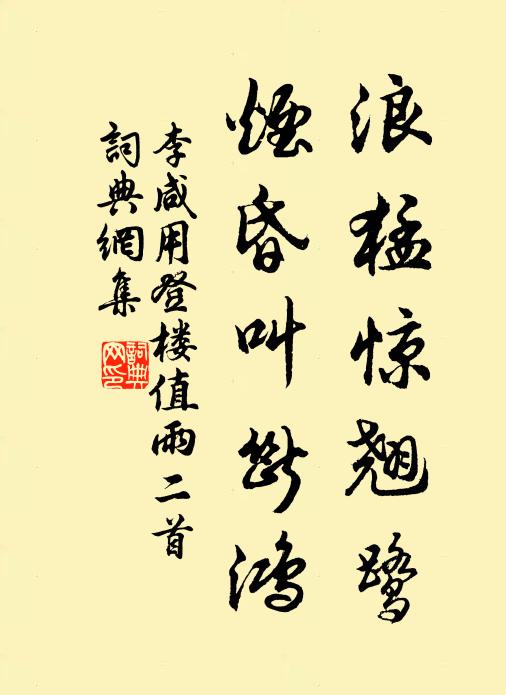 浪猛惊翘鹭
煙昏叫断鸿
李咸用登楼值雨二首
詞典網集
詞典
网印